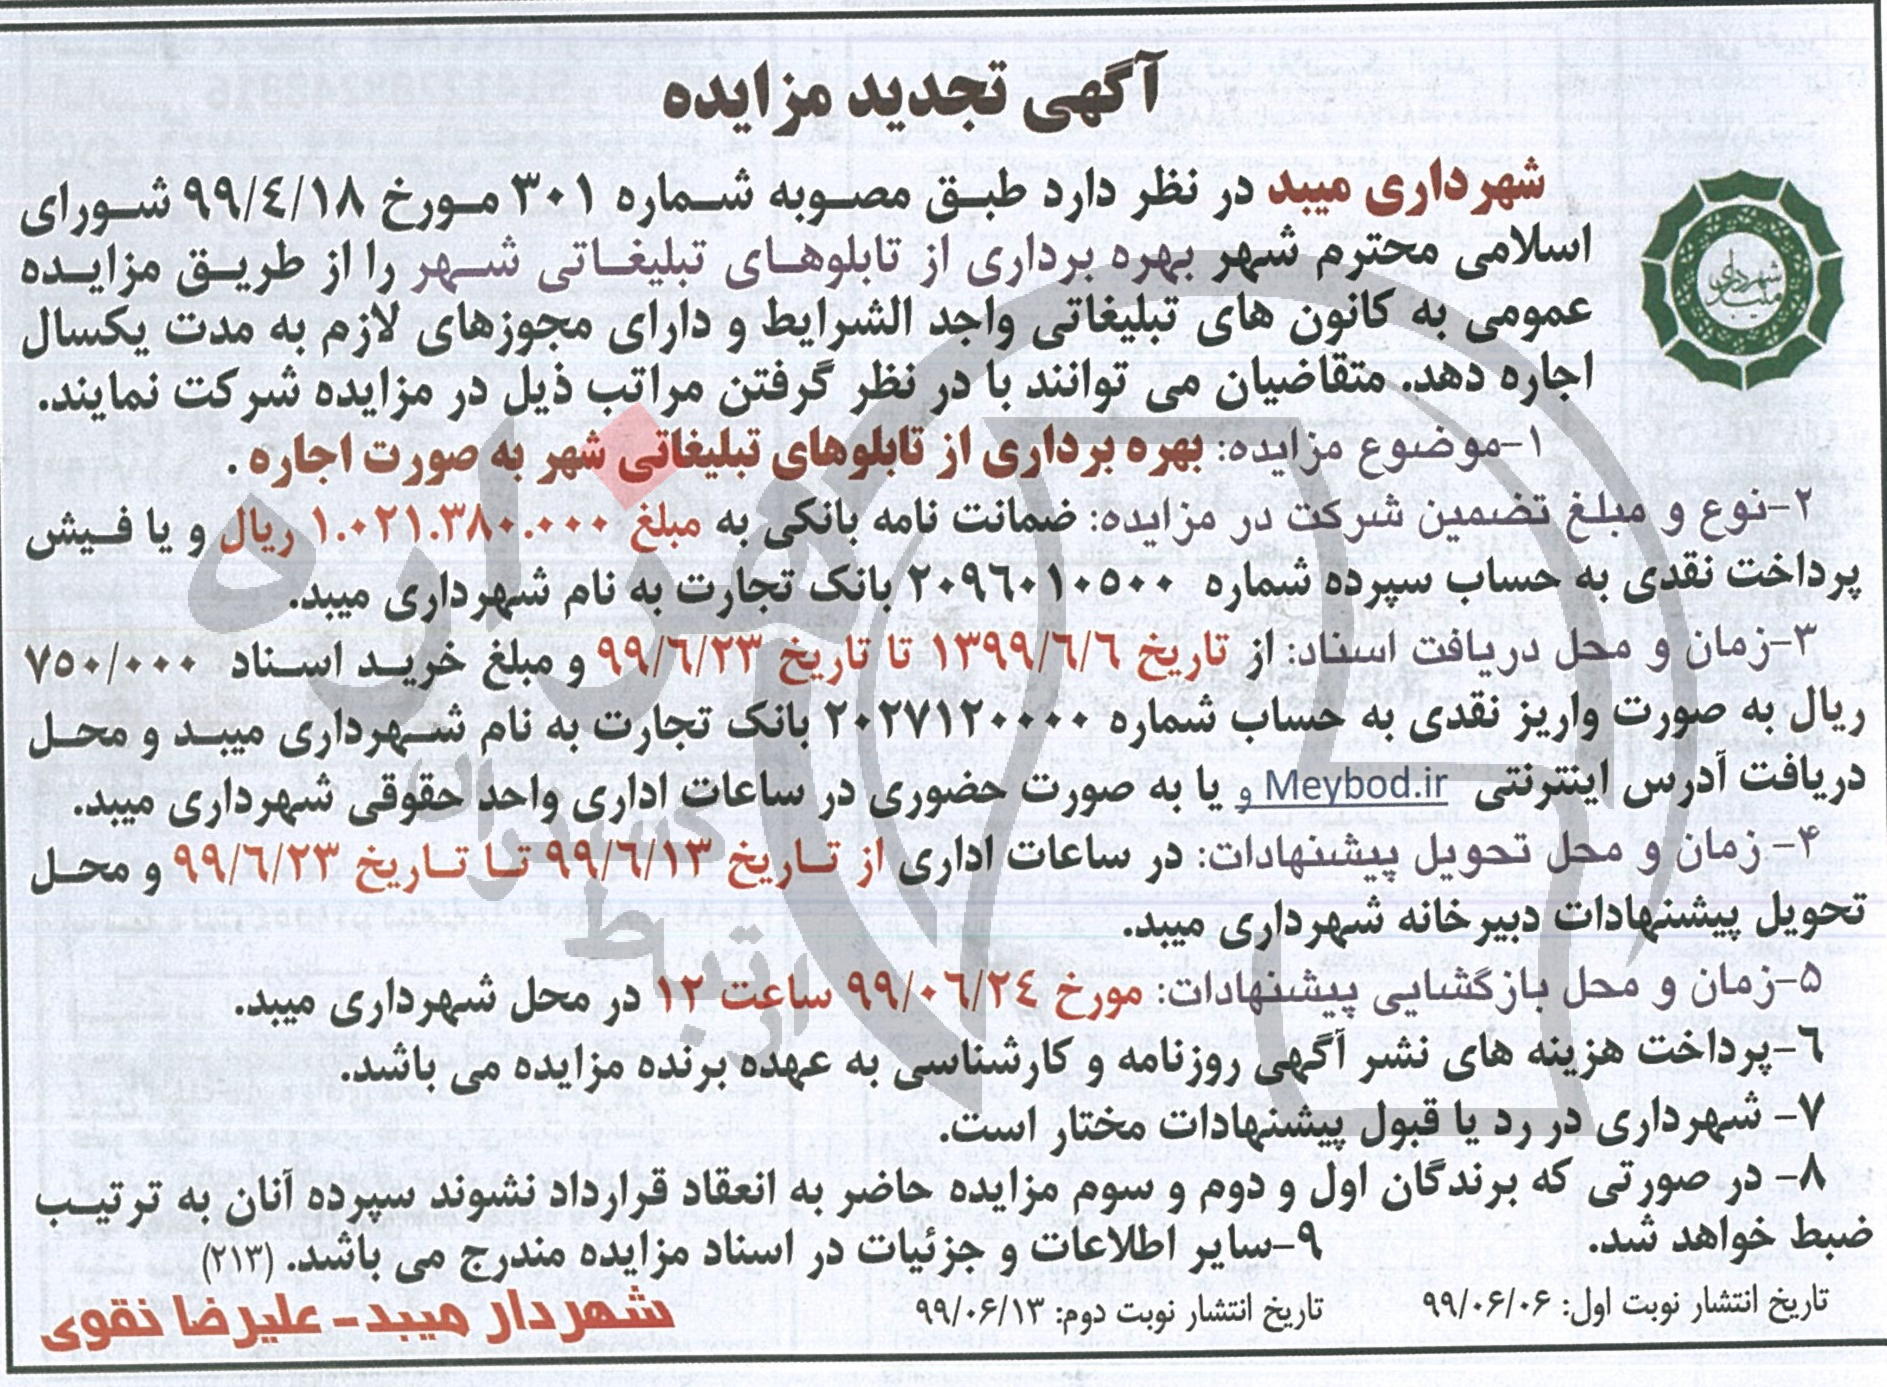 آگهی تجدید مزایده
شهرداری میبد
شهرداری میبد در نظر دارد طبق مصوبه شماره ۳۰۱ مورخ ۹۹/٤/۱۸ شورای
اسلامی محترم شهر بهره برداری از تابلوهای تبلیغاتی شهر را از طریق مزایده
عمومی به کانون های تبلیغاتی واجد الشرایط و دارای مجوزهای لازم به مدت یکسال
اجاره دهد. متقاضیان می توانند با در نظر گرفتن مراتب ذیل در مزایده شرکت نمایند.
۱-موضوع مزایده: بهره برداری از تابلوهای تبلیغاتی شهر به صورت اجاره .
۲-نوع و مبلغ تضمین شرکت در مزایده: ضمانت نامه بانکی به مبلغ ۱.۰۲۱.۳۸۰.۰۰۰ ریال و یا فیش
پرداخت نقدی به حساب سپرده شماره ۲۰۹٦۰۱۰۵۰۰ بانک تجارت به نام شهرداری میبد.
۳-زمان و محل دریافت اسناد: از تاریخ ۱۳۹۹/٦/٦ تا تاریخ ۹۹/٦/۲۳ و مبلغ خرید اسناد ۷۵۰/۰۰۰
ریال به صورت واریز نقدی به حساب شماره ۲۰۲۷۱۲۰۰۰۰ بانک تجارت به نام شهرداری میبد و محل
دریافت آدرس اینترنتی Meybod.ir و یا به صورت حضوری در ساعات اداری واحد حقوقی شهرداری میبد.
۴- زمان و محل تحویل پیشنهادات: در ساعات اداری از تاریخ ۹۹/٦/۱۳ تا تاریخ ۹۹/٦/۲۳ و محل
تحویل پیشنهادات دبیرخانه شهرداری میبد.
۵-زمان و محل بازگشایی پیشنهادات: مورخ ۹۹/۰٦/۲٤ ساعت ۱۲ در محل شهرداری میبد.
٦-پرداخت هزینه های نشر آگهی روزنامه و کارشناسی به عهده برنده مزایده می باشد.
۷- شهرداری در رد یا قبول پیشنهادات مختار است.
۸- در صورتی که برندگان اول و دوم و سوم مزایده حاضر به انعقاد قرارداد نشوند سپرده آنان به ترتیب
ضبط خواهد شد.
۹-سایر اطلاعات و جزئیات در اسناد مزایده مندرج می باشد. (۲۱۳)
تاریخ انتشار نوبت اول: ۹۹/۰۶/۰۶
تاریخ انتشار نوبت دوم: ۹۹/۰۶/۱۳
شهردار میبد - علیرضا نقوی
هزاره
ارتباط
گستران